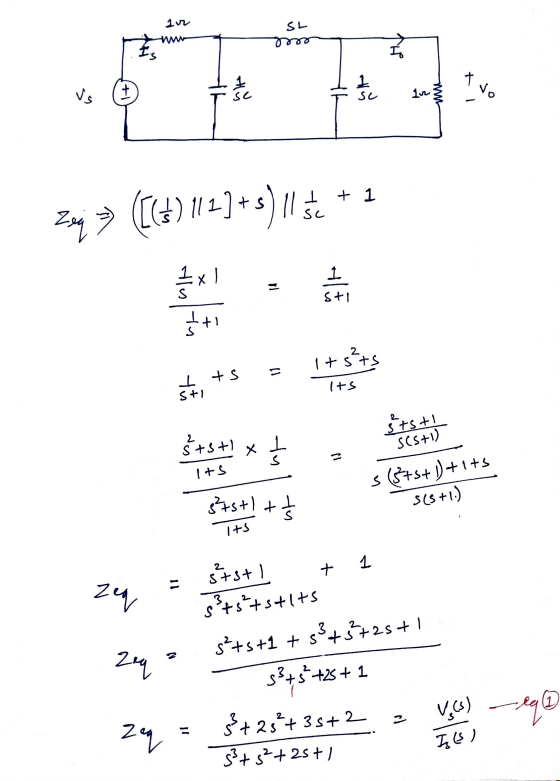 1Ω SL
I_s I_o
V_s ± 1/SC 1/SC 1Ω + - V_o
Zeq ⇒ ([(1/s) || 1] + s) || 1/sc + 1
(1/s × 1)/(1/s + 1) = 1/(s+1)
1/(s+1) + s = (1+s²+s)/(1+s)
((s²+s+1)/(1+s) × 1/s)/((s²+s+1)/(1+s) + 1/s) = ((s²+s+1)/(s(s+1)))/((s(s²+s+1)+1+s)/(s(s+1)))
Zeq = (s²+s+1)/(s³+s²+s+1+s) + 1
Zeq = (s²+s+1 + s³+s²+2s+1)/(s³+s²+2s+1)
Zeq = (s³+2s²+3s+2)/(s³+s²+2s+1) = V_s(s)/I_s(s) —eq①